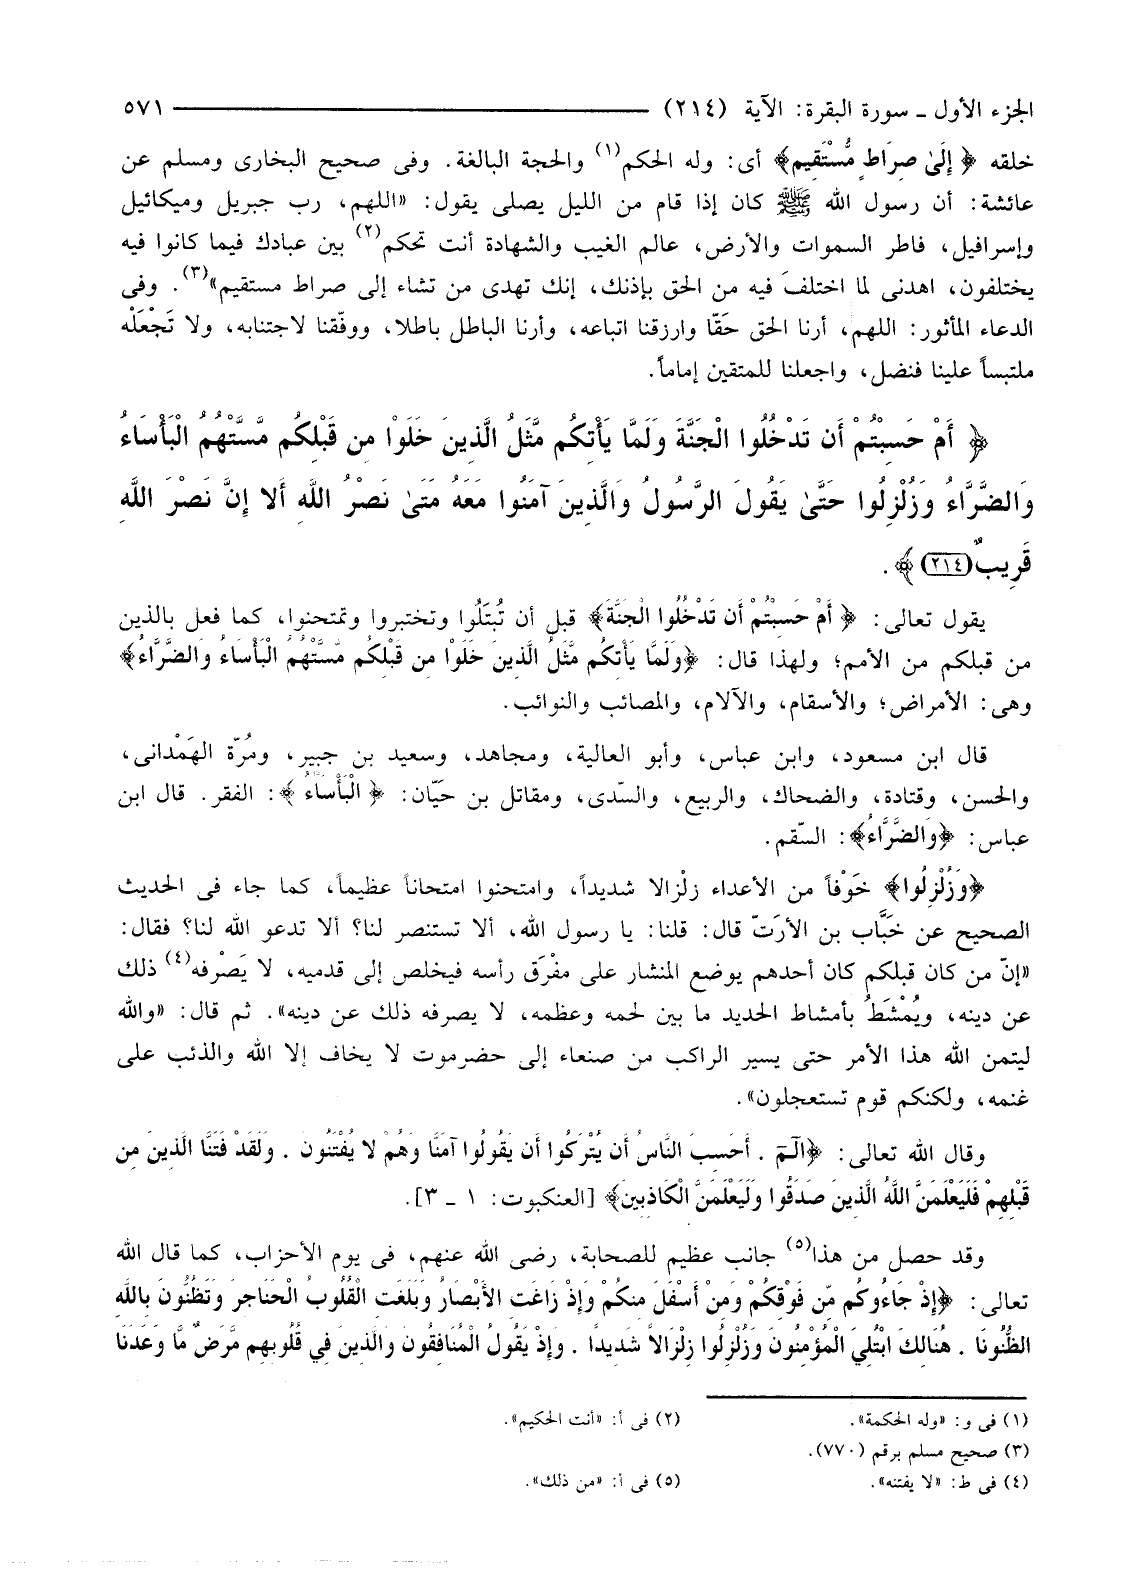 الجزء الأول ـ سورة البقرة: الآية (٢١٤) ٥٧١
خلقه ﴿ إِلَىٰ صِرَاطٍ مُّسْتَقِيمٍ﴾ أى: وله الحكم(١) والحجة البالغة. وفى صحيح البخارى ومسلم عن
عائشة: أن رسول الله ﷺ كان إذا قام من الليل يصلى يقول: «اللهم، رب جبريل وميكائيل
وإسرافيل، فاطر السموات والأرض، عالم الغيب والشهادة أنت تحكم(٢) بين عبادك فيما كانوا فيه
يختلفون، اهدنى لما اختلفَ فيه من الحق بإذنك، إنك تهدى من تشاء إلى صراط مستقيم»(٣). وفى
الدعاء المأثور: اللهم، أرنا الحق حَقّا وارزقنا اتباعه، وأرنا الباطل باطلا، ووفّقنا لاجتنابه، ولا تَجْعَلْه
ملتبساً علينا فنضل، واجعلنا للمتقين إماماً.
﴿ أَمْ حَسِبْتُمْ أَن تَدْخُلُوا الْجَنَّةَ وَلَمَّا يَأْتِكُم مَّثَلُ الَّذِينَ خَلَوْا مِن قَبْلِكُم مَّسَّتْهُمُ الْبَأْسَاءُ
وَالضَّرَّاءُ وَزُلْزِلُوا حَتَّىٰ يَقُولَ الرَّسُولُ وَالَّذِينَ آمَنُوا مَعَهُ مَتَىٰ نَصْرُ اللَّهِ أَلا إِنَّ نَصْرَ اللَّهِ
قَرِيبٌ (٢١٤) ﴾ .
يقول تعالى: ﴿ أَمْ حَسِبْتُمْ أَن تَدْخُلُوا الْجَنَّةَ﴾ قبل أن تُبتَلُوا وتختبروا وتمتحنوا، كما فعل بالذين
من قبلكم من الأمم؛ ولهذا قال: ﴿وَلَمَّا يَأْتِكُم مَّثَلُ الَّذِينَ خَلَوْا مِن قَبْلِكُم مَّسَّتْهُمُ الْبَأْسَاءُ وَالضَّرَّاءُ﴾
وهى: الأمراض؛ والأسقام، والآلام، والمصائب والنوائب.
قال ابن مسعود، وابن عباس، وأبو العالية، ومجاهد، وسعيد بن جبير، ومُرّة الهَمْدانى،
والحسن، وقتادة، والضحاك، والربيع، والسّدى، ومقاتل بن حَيّان: ﴿ الْبَأْسَاءُ ﴾: الفقر. قال ابن
عباس: ﴿وَالضَّرَّاءُ﴾: السّقم.
﴿وَزُلْزِلُوا﴾ خَوْفاً من الأعداء زلْزالا شديداً، وامتحنوا امتحاناً عظيماً، كما جاء فى الحديث
الصحيح عن خَبَّاب بن الأرَتّ قال: قلنا: يا رسول الله، ألا تستنصر لنا؟ ألا تدعو الله لنا؟ فقال:
«إنّ من كان قبلكم كان أحدهم يوضع المنشار على مفْرَق رأسه فيخلص إلى قدميه، لا يَصْرفه(٤) ذلك
عن دينه، ويُمْشَطُ بأمشاط الحديد ما بين لحمه وعظمه، لا يصرفه ذلك عن دينه». ثم قال: «والله
ليتمن الله هذا الأمر حتى يسير الراكب من صنعاء إلى حضرموت لا يخاف إلا الله والذئب على
غنمه، ولكنكم قوم تستعجلون».
وقال الله تعالى: ﴿الٓمٓ . أَحَسِبَ النَّاسُ أَن يُتْرَكُوا أَن يَقُولُوا آمَنَّا وَهُمْ لا يُفْتَنُونَ . وَلَقَدْ فَتَنَّا الَّذِينَ مِن
قَبْلِهِمْ فَلَيَعْلَمَنَّ اللَّهُ الَّذِينَ صَدَقُوا وَلَيَعْلَمَنَّ الْكَاذِبِينَ﴾ [العنكبوت: ١ ـ ٣].
وقد حصل من هذا(٥) جانب عظيم للصحابة، رضى الله عنهم، فى يوم الأحزاب، كما قال الله
تعالى: ﴿إِذْ جَاءُوكُم مِّن فَوْقِكُمْ وَمِنْ أَسْفَلَ مِنكُمْ وَإِذْ زَاغَتِ الأَبْصَارُ وَبَلَغَتِ الْقُلُوبُ الْحَنَاجِرَ وَتَظُنُّونَ بِاللَّهِ
الظُّنُونَا . هُنَالِكَ ابْتُلِيَ الْمُؤْمِنُونَ وَزُلْزِلُوا زِلْزَالاً شَدِيدًا . وَإِذْ يَقُولُ الْمُنَافِقُونَ وَالَّذِينَ فِي قُلُوبِهِم مَّرَضٌ مَّا وَعَدَنَا
(١) فى و: «وله الحكمة». (٢) فى أ: «أنت الحكيم».
(٣) صحيح مسلم برقم (٧٧٠).
(٤) فى ط: «لا يفتنه». (٥) فى أ: «من ذلك».